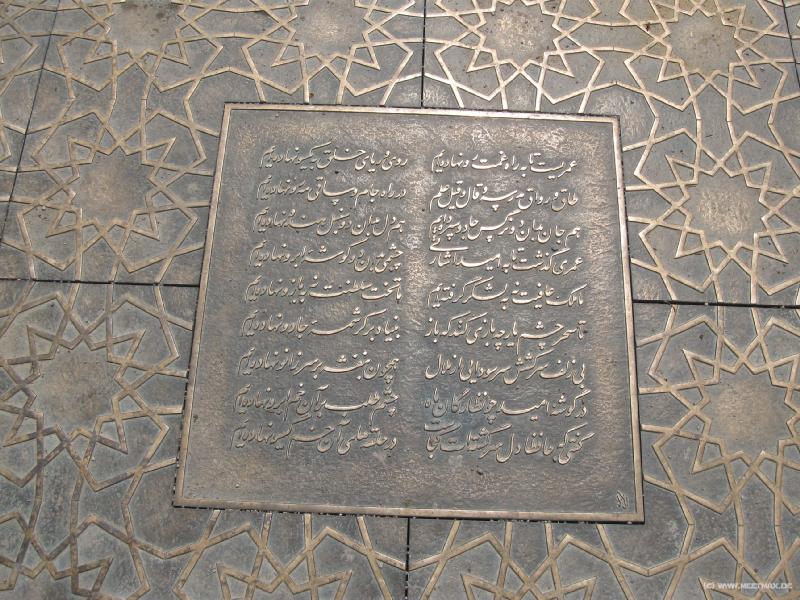 عمریست تا به راه غمت رو نهاده‌ایم روی و ریای خلق به یکسو نهاده‌ایم
طاق و رواق مدرسه و قال و قیل علم در راه جام و ساقی مه‌رو نهاده‌ایم
هم جان بدان دو نرگس جادو سپرده‌ایم هم دل بدان دو سنبل هندو نهاده‌ایم
عمری گذشت تا به امید اشارتی چشمی بدان دو گوشه ابرو نهاده‌ایم
ما ملک عافیت نه به لشکر گرفته‌ایم ما تخت سلطنت نه به بازو نهاده‌ایم
تا سحر چشم یار چه بازی کند که باز بنیاد بر کرشمه جادو نهاده‌ایم
بی زلف سرکشش سر سودایی از ملال همچون بنفشه بر سر زانو نهاده‌ایم
در گوشه امید چو نظارگان ماه چشم طلب بر آن خم ابرو نهاده‌ایم
گفتی که حافظا دل سرگشته‌ات کجاست در حلقه‌های آن خم گیسو نهاده‌ایم
(C) WWW.MEETMAX.DE